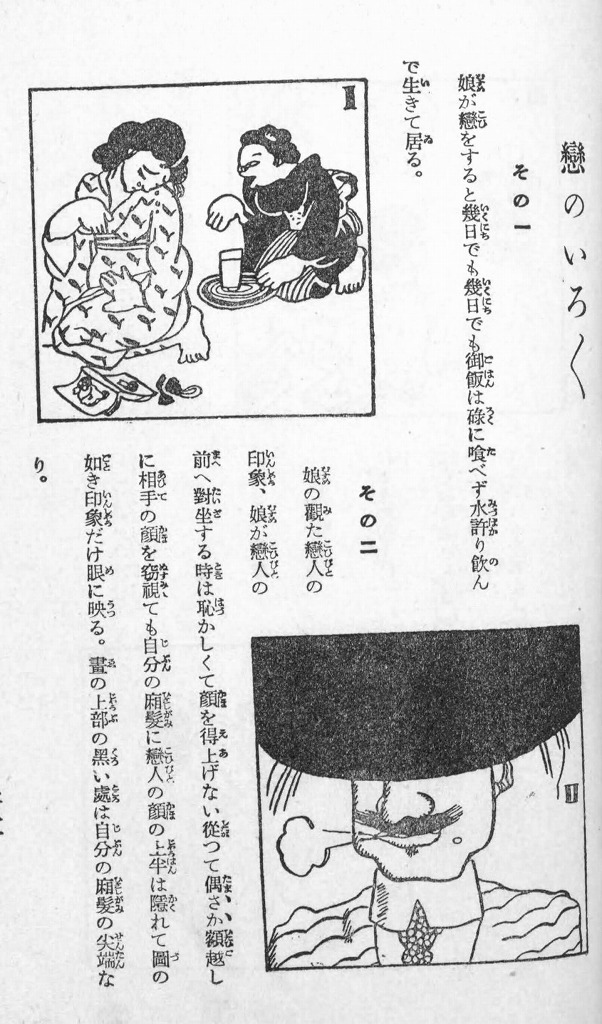 戀のいろ〱
その一
娘が戀をすると幾日でも幾日でも御飯は碌に喰べず水許り飲ん
で生きて居る。
I
その二
娘の觀た戀人の
印象、娘が戀人の
前へ對坐する時は恥かしくて顏を得上げない從つて偶さか額越し
に相手の顏を窃視ても自分の廂髮に戀人の顏の上半は隱れて圖の
如き印象だけ眼に映る。畫の上部の黑い處は自分の廂髮の尖端な
り。
II